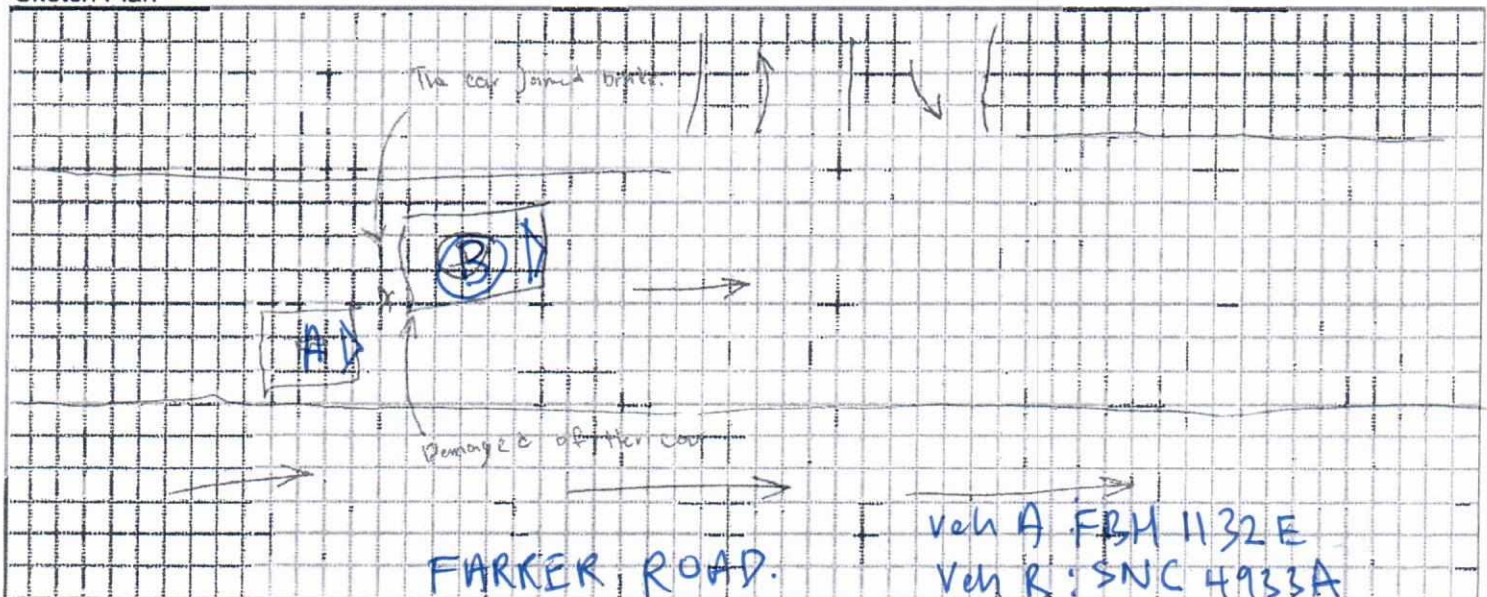 Sketch Plan
The car Jamed brake.
B
A
Damage of Her car
FARRER ROAD.
Veh A : FBH 1132E
Veh B : SNC 4933A